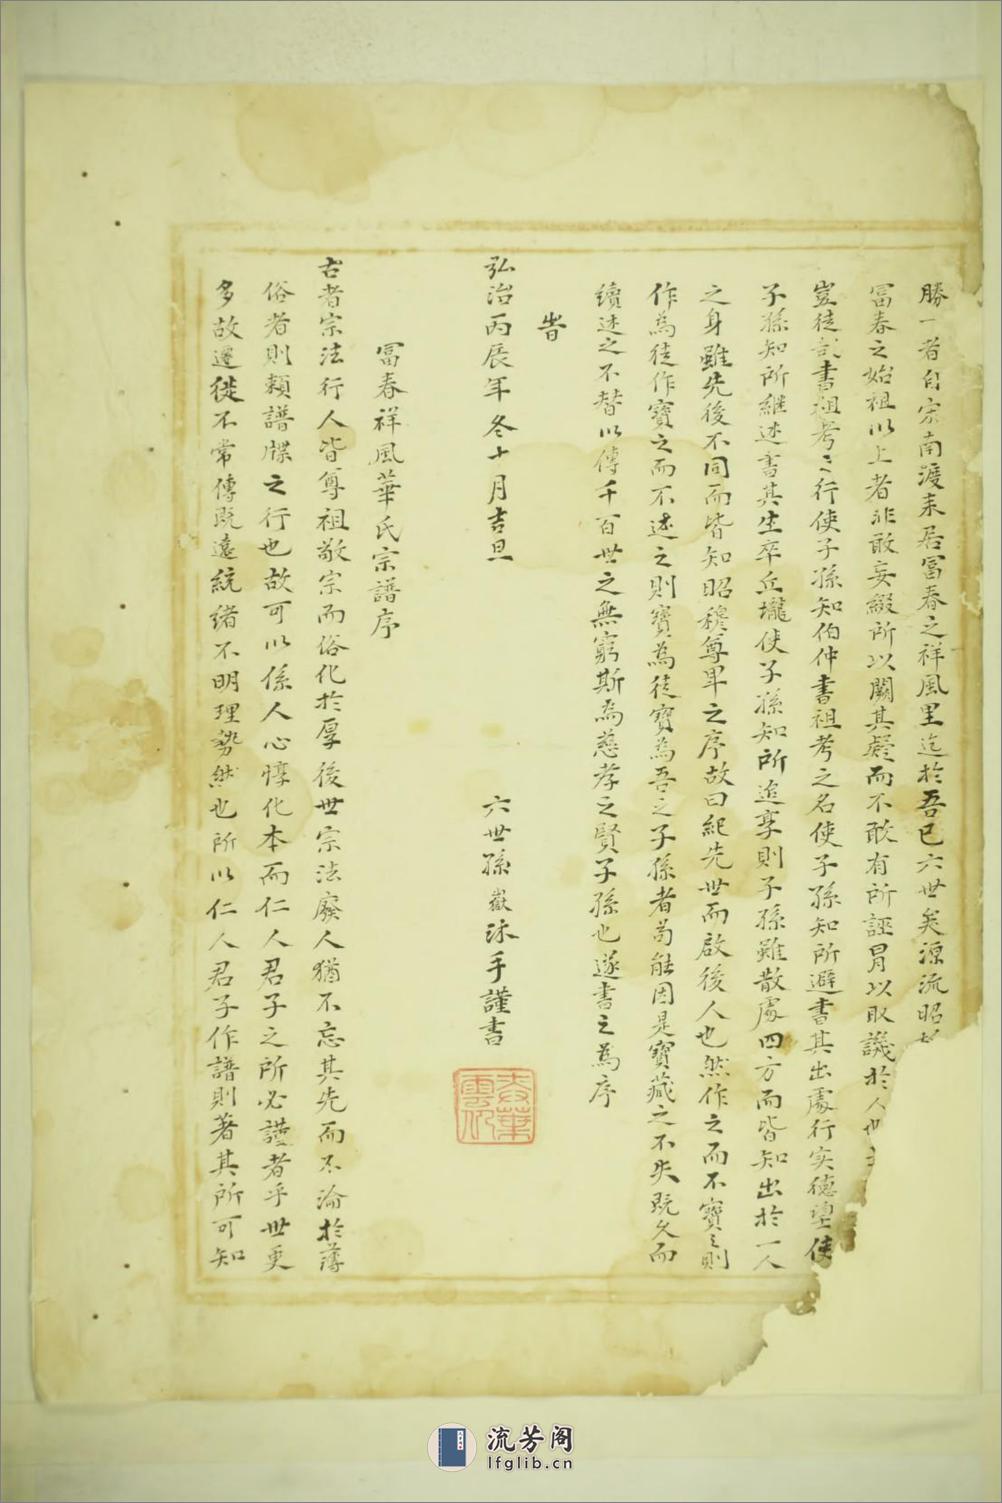 勝一者自宋南渡来居冨春之祥風里迄於吾已六世矣源流昭
冨春之始祖以上者非敢妄綴所以闕其疑而不敢有所誣冐以取譏於人也
豈徒哉書祖考之行使子孫知伯仲書祖考之名使子孫知所避書其出處行实德望使
子孫知所継述書其生卒丘壠使子孫知所追享則子孫雖散處四方而皆知出於一人
之身雖先後不同而皆知昭穆尊卑之序故曰紀先世而啟後人也然作之而不寶之則
作為徒作寶之而不述之則寶為徒寶為吾之子孫者苟能因是寶藏之不失既久而
續述之不替以傳千百世之無窮斯為慈孝之賢子孫也遂書之為序
旹
弘治丙辰年冬十月吉旦 六世孫嶽沐手謹書
冨春祥風華氏宗譜序
古者宗法行人皆尊祖敬宗而俗化於厚後世宗法廢人猶不忘其先而不淪於薄
俗者則頼譜牒之行也故可以係人心惇化本而仁人君子之所必謹者乎世更
多故遷徙不常傳既遠統緒不明理勢然也所以仁人君子作譜則著其所可知
流芳阁
lfglib.cn